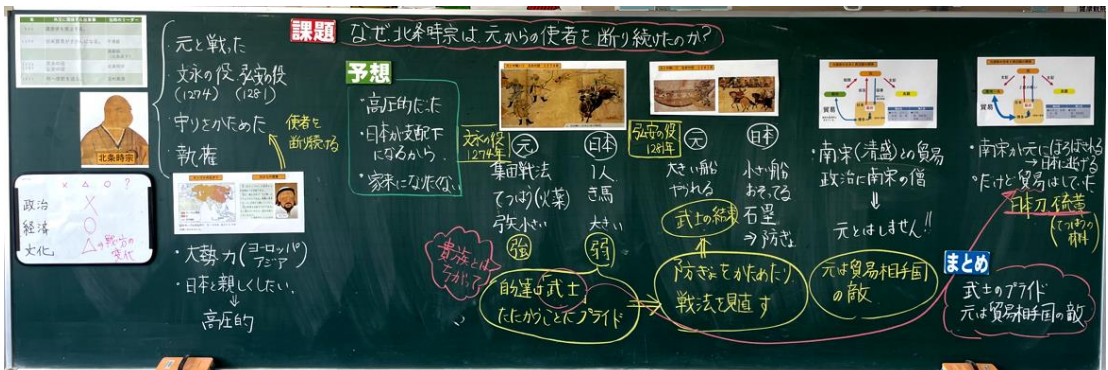 課題 なぜ、北条時宗は、元からの使者を断り続けたのか?
・元と戦った
・文永の役 弘安の役
(1274) (1281)
・守りをかためた
・執権
使者を
断り続ける
北条時宗
× △ ○ ?
政治 ×
経済 ○
文化 △
・大勢力(ヨーロッパ
アジア)
・日本と親しくしたい。
↓
高圧的
予想
・高圧的だった
・日本が支配下
になるから。
・家来になりたくない
文永の役
1274年
元
集団戦法
てつはう(火薬)
弓矢小さい
強
日本
1人
き馬
大きい
弱
貴族とは
ちがって
自分達は武士
たたかうことにプライド
弘安の役
1281年
元
大きい船
やられる
日本
小さい船
おそってる
石塁
⇒防ぎょ
武士の結束
防ぎょをかためたり、
戦法を見直す
貿易
・南宋(清盛)との貿易
政治に南宋の僧
⇓
元とはしません!!
元は貿易相手国
の敵
貿易
・南宋が元にほろぼされる
→日本に逃げる
・だけど貿易はしていた
日本刀、硫黄
(てつはうの
材料)
まとめ
武士のプライド
元は貿易相手国の敵